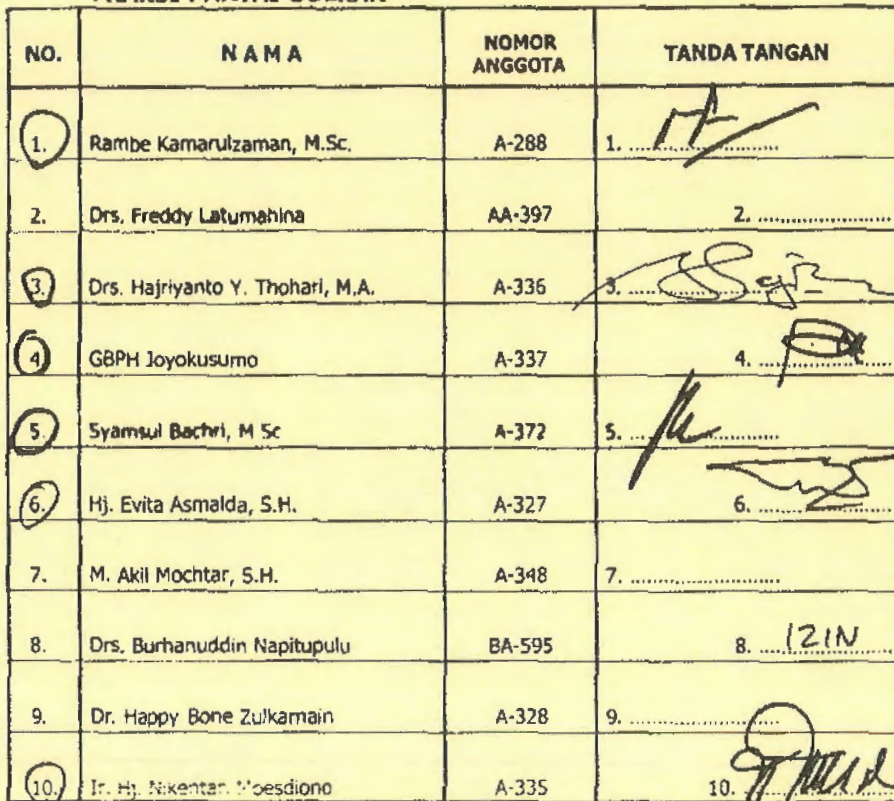 NO. NAMA NOMOR ANGGOTA TANDA TANGAN
1. Rambe Kamarulzaman, M.Sc. A-288 1. ....................
2. Drs. Freddy Latumahina AA-397 2. ....................
3. Drs. Hajriyanto Y. Thohari, M.A. A-336 3. ....................
4 GBPH Joyokusumo A-337 4. ....................
5. Syamsul Bachri, M Sc A-372 5. ....................
6. Hj. Evita Asmalda, S.H. A-327 6. ....................
7. M. Akil Mochtar, S.H. A-348 7. ....................
8. Drs. Burhanuddin Napitupulu BA-595 8. IZIN
9. Dr. Happy Bone Zulkarnain A-328 9. ....................
10. Ir. Hj. Nikentari Moesdiono A-335 10. ....................